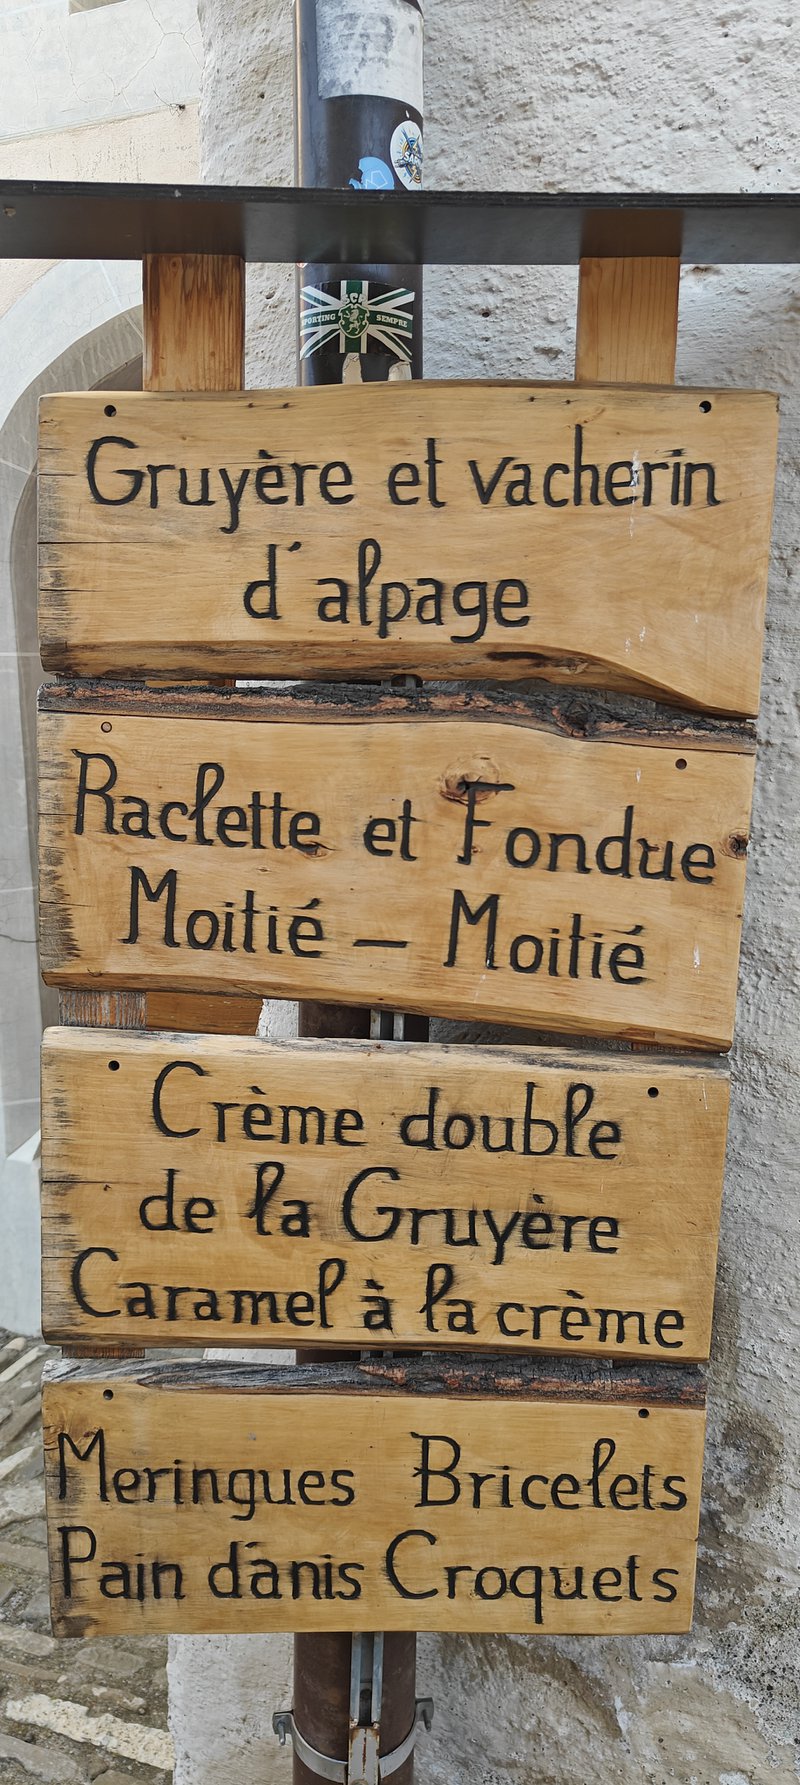 SPORTING SEMPRE
Gruyère et vacherin
d'alpage
Raclette et Fondue
Moitié – Moitié
Crème double
de la Gruyère
Caramel à la crème
Meringues Bricelets
Pain d'anis Croquets